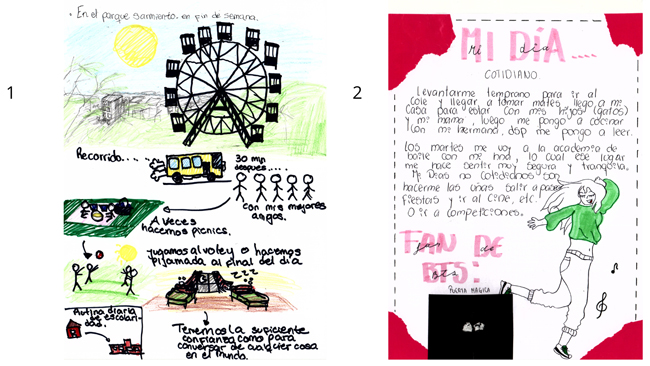 1
• En el parque sarmiento. en fin de semana.
Recorrido.....
30 min
despues....
con mis mejores
amigos.
A veces
hacemos picnics.
yugamos al voley o hacemos
pijamada al final del dia
zzz
Rutina diaria
de escolari-
dad.
Tenemos la suficiente
confianza como para
conversar de cualquier cosa
en el mundo.
2
MI DÍA....
mi dia
COTIDIANO
Levantarme temprano para ir al
cole y llegar a tomar mates, llego a mi
casa para estar con mis hijos (gatos)
y mi mama, luego me pongo a cocinar
con mi hermano, dsp me pongo a leer.
Los martes me voy a la academia de
baile con mi hna, lo cual ese lugar
me hace sentir muy segura y tranquila.
Mi Dias no cotideanos son
hacerme las uñas salir a pasear
fiestas y ir al cine, etc.
O ir a competiciones.
FAN DE
fan de
BTS:
bts
PUERTA MAGICA